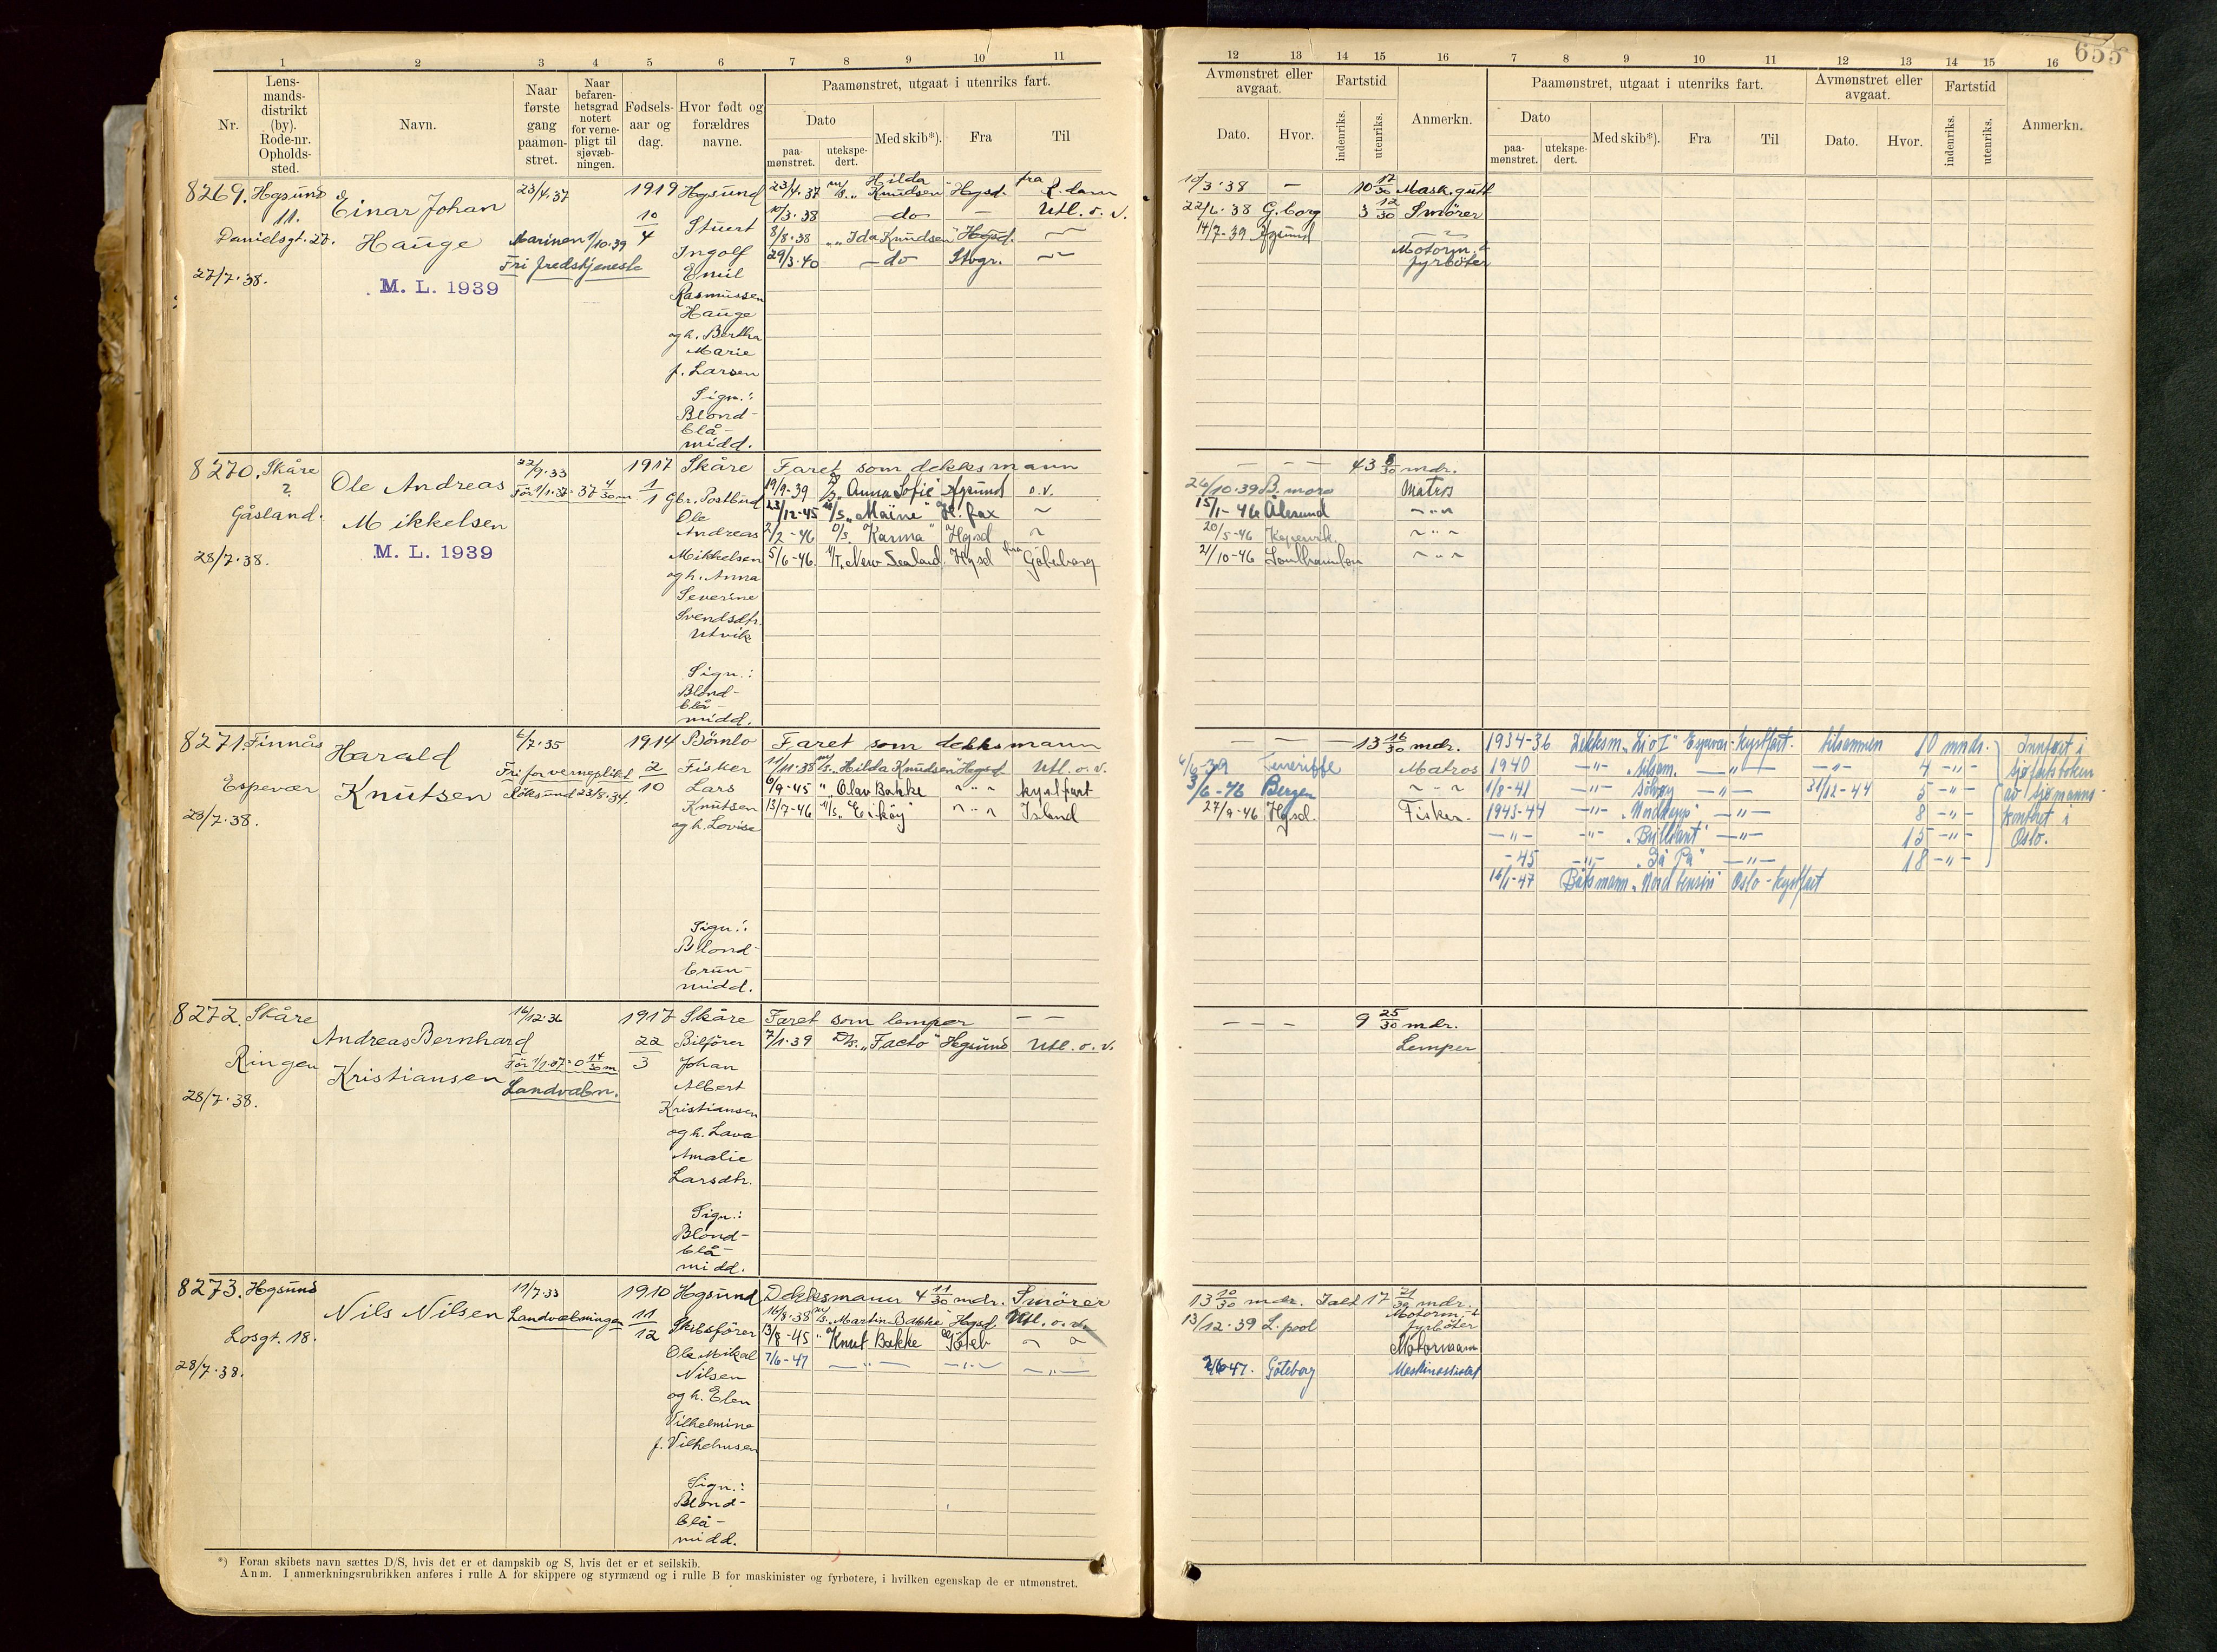 655
1 2 3 4 5 6 7 8 9 10 11
Nr.
Lens-
mands-
distrikt
(by).
Rode-nr.
Opholds-
sted.
Navn.
Naar
første
gang
paamøn-
stret.
Naar
befaren-
hetsgrad
notert
for verne-
pligt til
sjøvæb-
ningen.
Fødsels-
aar og
dag.
Hvor født og
forældres
navne.
Paamønstret, utgaat i utenriks fart.
Dato
paa-
mønstret.
utekspe-
dert.
Med skib*).
Fra
Til
12 13 14 15 16 7 8 9 10 11 12 13 14 15 16
Avmønstret eller
avgaat.
Dato.
Hvor.
Fartstid
indenriks.
utenriks.
Anmerkn.
Paamønstret, utgaat i utenriks fart.
Dato
paa-
mønstret.
utekspe-
dert.
Med skib*).
Fra
Til
Avmønstret eller
avgaat.
Dato.
Hvor.
Fartstid
indenriks.
utenriks.
Anmerkn.
8269. Hgsund
11.
Danielsgt. 27.
27/7·38.
Einar Johan
Hauge
M. L. 1939
23/4·37
Marinen 1/10·39
Fri fredstjeneste
1919
10
4
Hgsund
Stuert
Ingolf
Emil
Rasmussen
Hauge
og h. Bertha
Marie
f. Larsen
Sign.:
Blond-
blå-
midd.
23/4·37 M/S. „Hilda Knudsen" Hgsd. fra R.dam
10/3·38 — do — — Utl. o. v.
8/8·38 „ „ Ida Knudsen" Hgsd. —
29/3·40 — do Stvgr. —
10/3·38 — 10 17/30 Mask.gutt
22/6·38 G.borg 3 12/30 Smörer
14/7-39 Hgsund
Motorm. &
fyrböter
8270. Skåre
?
Gåsland.
28/7·38.
Ole Andreas
Mikkelsen
M. L. 1939
22/9·33
För 1/1·37= 37 4/30 m
1917
1
1
Skåre
Gbr. Postbud
Ole
Andreas
Mikkelsen
og h. Anna
Severine
Svendsdtr.
Utvik
Sign.:
Blond-
blå-
midd.
Faret som dekksmann
19/9-39 „Anna Sofie" Hgsund o.v.
23/12-45 M/S „Maïne" H.fax ~
2/2-46 D/S. "Karma" Hgsd ~
5/6-46. M/T. „New Sealand. Hgsd fra Göteborg
— — — 43 8/30 mdr.
26/10·39 B.more Matros
15/1-46 Ålesund ~ „ ~
20/5-46 Kopervik. ~ „ ~
21/10-46 Southampton ~ „ ~
8271. Finnås
Espevær
28/7·38.
Harald
Knutsen
6/7·35
Fri for verneplikt
Röksund 23/8·34.
1914
2
10
Bömlo
Fisker
Lars
Knutsen
og h. Lovise
Sign.:
Blond-
brun-
midd.
Faret som dekksmann
11/11·38 M/S. „Hilda Knudsen" Hgsd Utl. o. v.
6/9-45 " „Olav Bakke ~ „ ~ kystfart
13/7-46 M/S „Eiköy" ~ „ ~ Island
— — — 13 16/30 mdr.
4/6-39 Teneriffe Matros
3/6-46 Bergen ~ „ ~
27/9-46 Hgsd. Fisker-
1934-36 Dekksm. „Lio I" Espevær - Kystfart. tilsammen 10 mndr.
1940 —"— —"— —"— 4 —"—
1/8-41 —"— Solvøy —"— 31/12-44 5 —"—
1943-44 —"— —"— 8 —"—
—"— —"— „Brilliant" —"— 15 —"—
-45 —"— —"— 18 —"—
16/1-47 Båtsmann „Nord bensin" Oslo - kystfart
Innført i
sjøfartsboken
av sjømanns-
kontoret i
Oslo.
8272. Skåre
Ringen
28/7·38.
Andreas Bernhard
Kristiansen
16/12·36
För 1/1·37= 0 14/30 m
Landvæbn.
1917
22
3
Skåre
Bilförer
Johan
Albert
Kristiansen
og h. Lava
Amalie
Larsdtr.
Sign.:
Blond-
blå-
midd.
Faret som lemper — —
7/1·39 D/s. „Facto" Hgsund Utl. o. v.
— — — 9 25/30 mdr.
Lemper
8273. Hgsund
Losgt. 18.
28/7·38.
Nils Nilsen
11/7·33
Landvæbningen
1910
11
12
Hgsund
Skibsförer
Ole Mikal
Nilsen
og h. Elen
Vilhelmine
f. Vilhelmsen
Sign.:
Blond-
blå-
midd.
Dekksmann 4 11/30 mdr. Smörer
16/8·38 M/S. „Martin Bakke" Hgsd. Utl. o. v.
13/8-45 " Knut Bakke Göteb ~ ~
7/6-47 —"— —"— —"—
13 10/30 mdr. Ialt 17 21/30 mdr.
13/12·39 L.pool Motorm. &
fyrböter
Motormann
2/6 47. Göteborg Maskinassistent
*) Foran skibets navn sættes D/S, hvis det er et dampskib og S, hvis det er et seilskib.
Anm. I anmerkningsrubrikken anføres i rulle A for skippere og styrmænd og i rulle B for maskinister og fyrbøtere, i hvilken egenskap de er utmønstret.